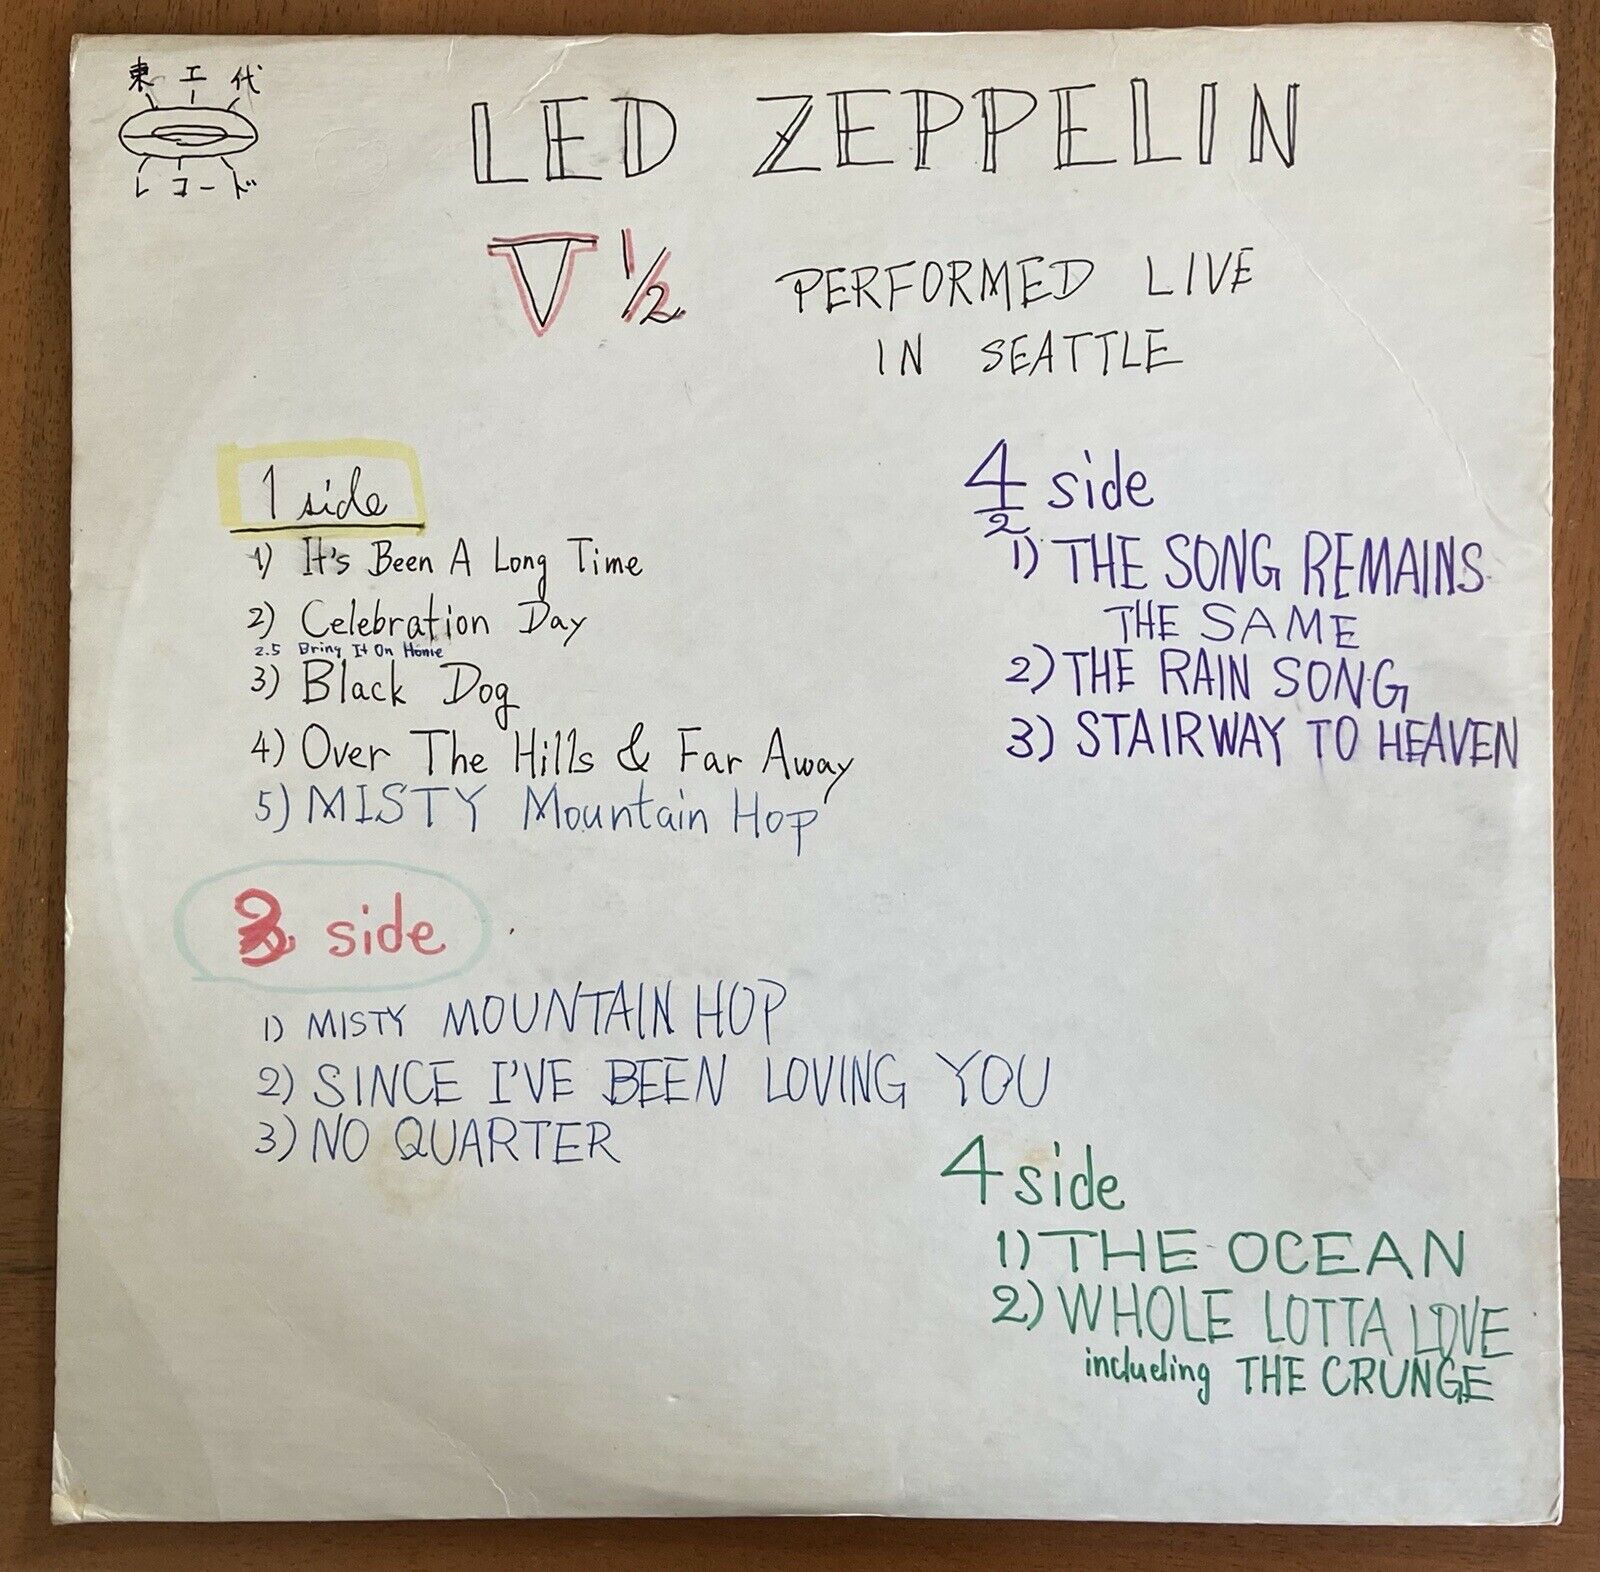 東工代
レコード
LED ZEPPELIN
V 1/2
PERFORMED LIVE
IN SEATTLE
1 side
1) It's Been A Long Time
2) Celebration Day
2.5 Bring It On Home
3) Black Dog
4) Over The Hills & Far Away
5) MISTY Mountain Hop
side
1) MISTY MOUNTAIN HOP
2) SINCE I'VE BEEN LOVING YOU
3) NO QUARTER
4/2 side
1) THE SONG REMAINS
THE SAME
2) THE RAIN SONG
3) STAIRWAY TO HEAVEN
4 side
1) THE OCEAN
2) WHOLE LOTTA LOVE
including THE CRUNGE